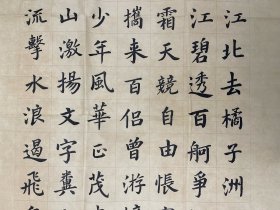 江北去橘子洲
江碧透百舸爭
霜天競自由悵
攜来百侣曾游
少年風華正茂
山激揚文字糞
流擊水浪遏飛